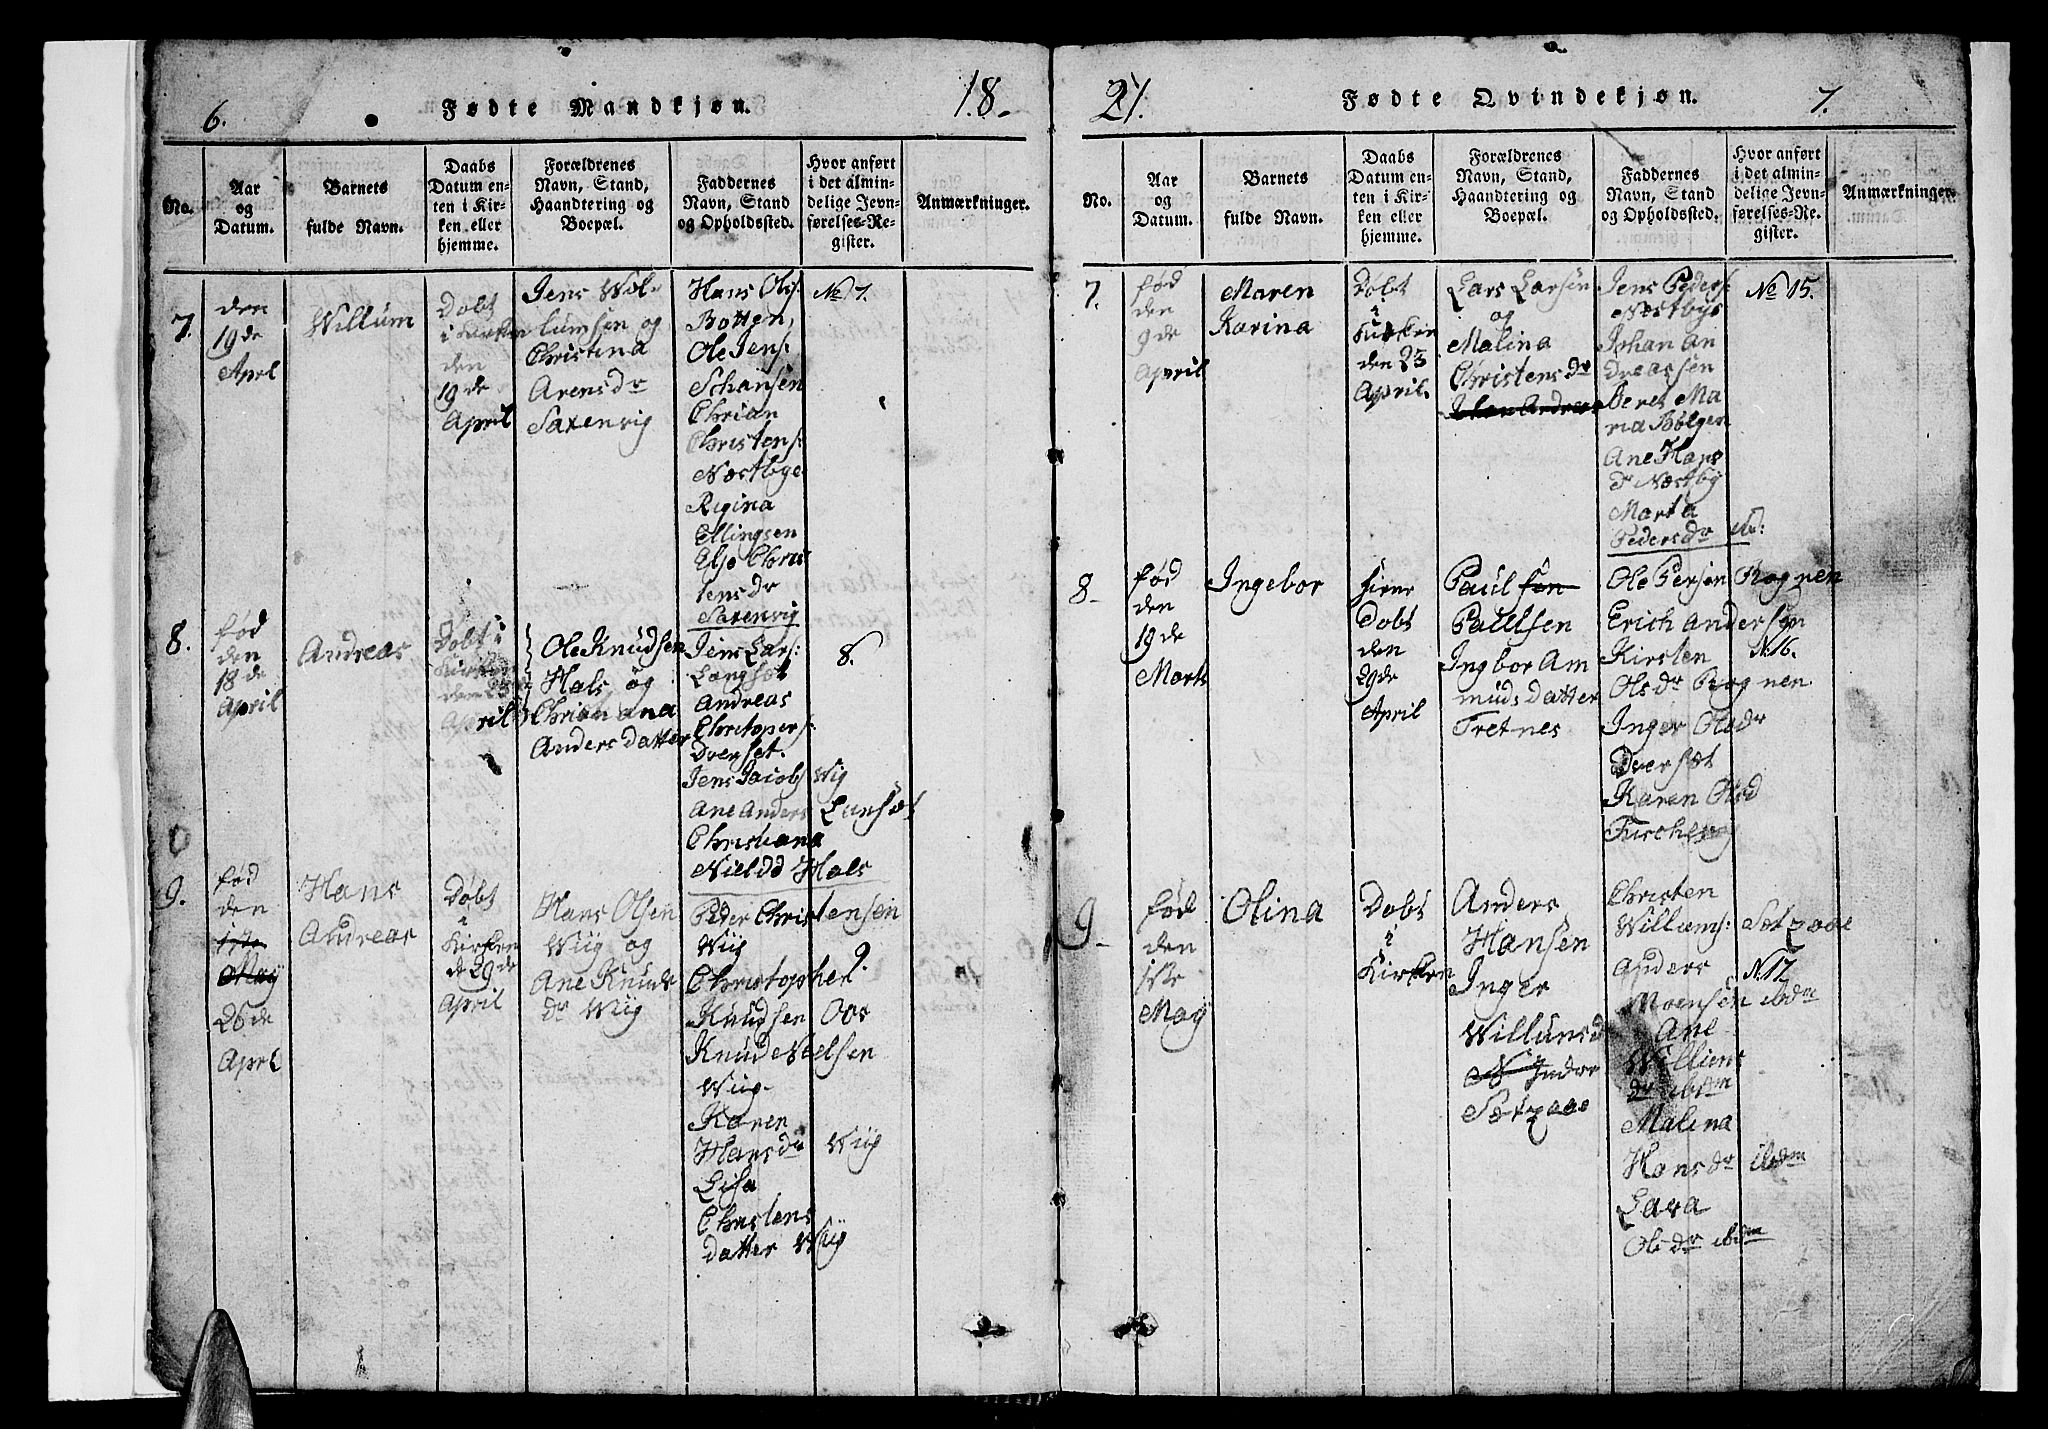 6.
Fødte Mandkjøn.
18.
No.
Aar
og
Datum.
Barnets
fulde Navn.
Daabs
Datum en-
ten i Kir-
ken eller
hjemme.
Forældrenes
Navn, Stand,
Haandtering og
Boepæl.
Faddernes
Navn, Stand
og Opholdssted.
Hvor anført
i det almin-
delige Jevn-
førelses-Re-
gister.
Anmærkninger.
7.
den
19de
April
Willum
Døbt
i Kirken
den
19de
April
Jens Wol-
lumsen og
Christina
Arensdr
Saxenvig
Hans Ols:
Botten,
Ole Jens:
Schansen
Chrian
Christens:
Næstbye
Regina
Ellingsen
Else Chris
tensdr
Saxenvig
No 7.
8.
fød
den
18de
April
Andreas
Døbt i
Kirken
den 23
April
Ole Knudsen
Hals og
Christiana
Andersdatter
Jens Lars:
Langset
Andreas
Christopers:
Dverset.
Jens Jacobs Wig
Ane Anders Lansæt
Christiana
Nieldd Hals
8.
9.
fød
den
1ste
May
26de
April
Hans
Andreas
Døbt
i
Kirken
d 29de
April
Hans Olsen
Wiig og
Ane Knuds
dr Wiig
Peder Christensen
Wiig
Christopher
Knudsen Oos
Knud Nielsen
Wiig
Karen
Hansdr Wiig
Lisa
Christens
datter Wiig
9.
21.
Fødte Qvindekjøn.
7.
No.
Aar
og
Datum.
Barnets
fulde Navn.
Daabs
Datum en-
ten i Kir-
ken eller
hjemme.
Forældrenes
Navn, Stand,
Haandtering og
Boepæl.
Faddernes
Navn, Stand
og Opholdssted.
Hvor anført
i det almin-
delige Jevn-
førelses-Re-
gister.
Anmærkninger.
7.
fød
den
9de
April
Maren
Karina
Døbt
i
Kirken
den 23
April.
Lars Larsen
og
Malina
Christensdr
Johan Andreas
Jens Peders:
Næstbye
Johan An
dreassen
Beret Ma
ria Bølgen
Ane Hans
dr Næstby
Marta
Pedersdr
No 15.
8-
fød
den
19de
Marts
Ingebor
Døbt
den
29de
April
Paul sen
Paulsen
Ingbor Am
muds datter
Tretnes
Ole Persen Rognen
Erich Andersen
Kirsten
Olsdr Rognen
Inger Olsdr
Dversæt
Karen Olsd
N.16.
9-
fød
den
1ste
May
Olina
Døbt
i
Kirken
Anders
Hansen
Inger
Willumsd
Christen
Willums:
Anders
Moensen ibdm
Ane
Williems
dr ibdm
Malina
Hansdr ibdm
Lava
Olsdr ibdm
N.17.